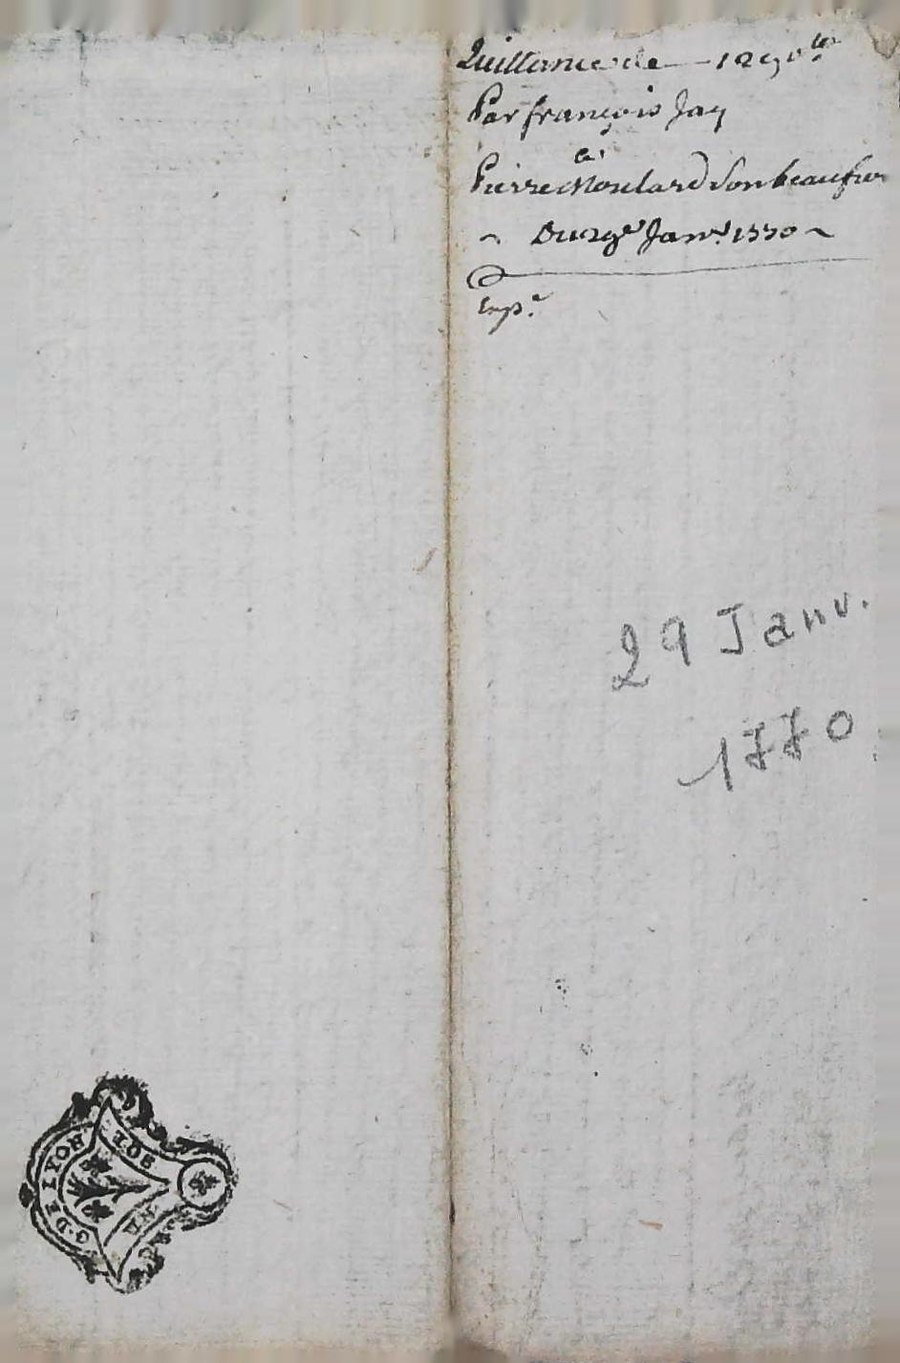 Quittance de — 129
Par françois Jay
a
Pierre Moulard Son beaufrer
~ Du 29e Janvr 1770 ~
Exp.e
29 Janv.
1770
G. DE LYON
SOL